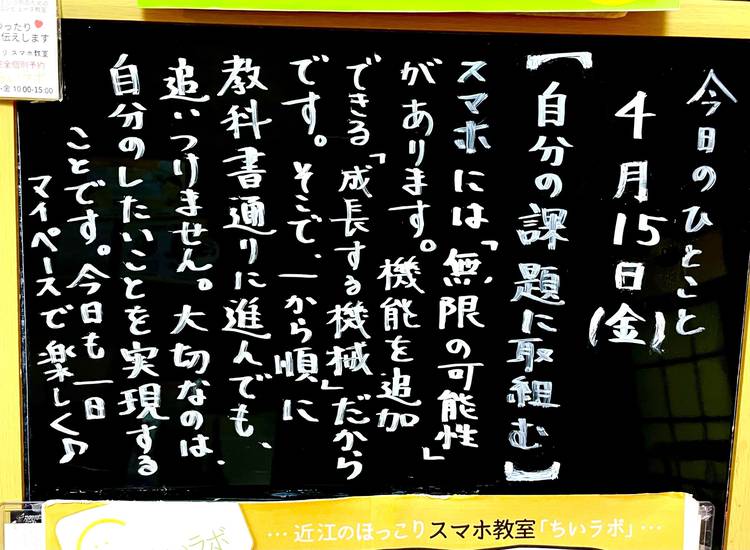 今日のひとこと
4月15日(金)
【自分の課題に取組む】
スマホには「無限の可能性」
があります。機能を追加
できる「成長する機械」だから
です。そこで、一から順に
教科書通りに進んでも、
追いつけません。大切なのは、
自分のしたいことを実現する
ことです。今日も一日
マイペースで楽しく♪
コンピュータ教室
伝えします
スマホ教室
完全個別予約
金 10:00-15:00
ラボ
…近江のほっこりスマホ教室「ちいラボ」…